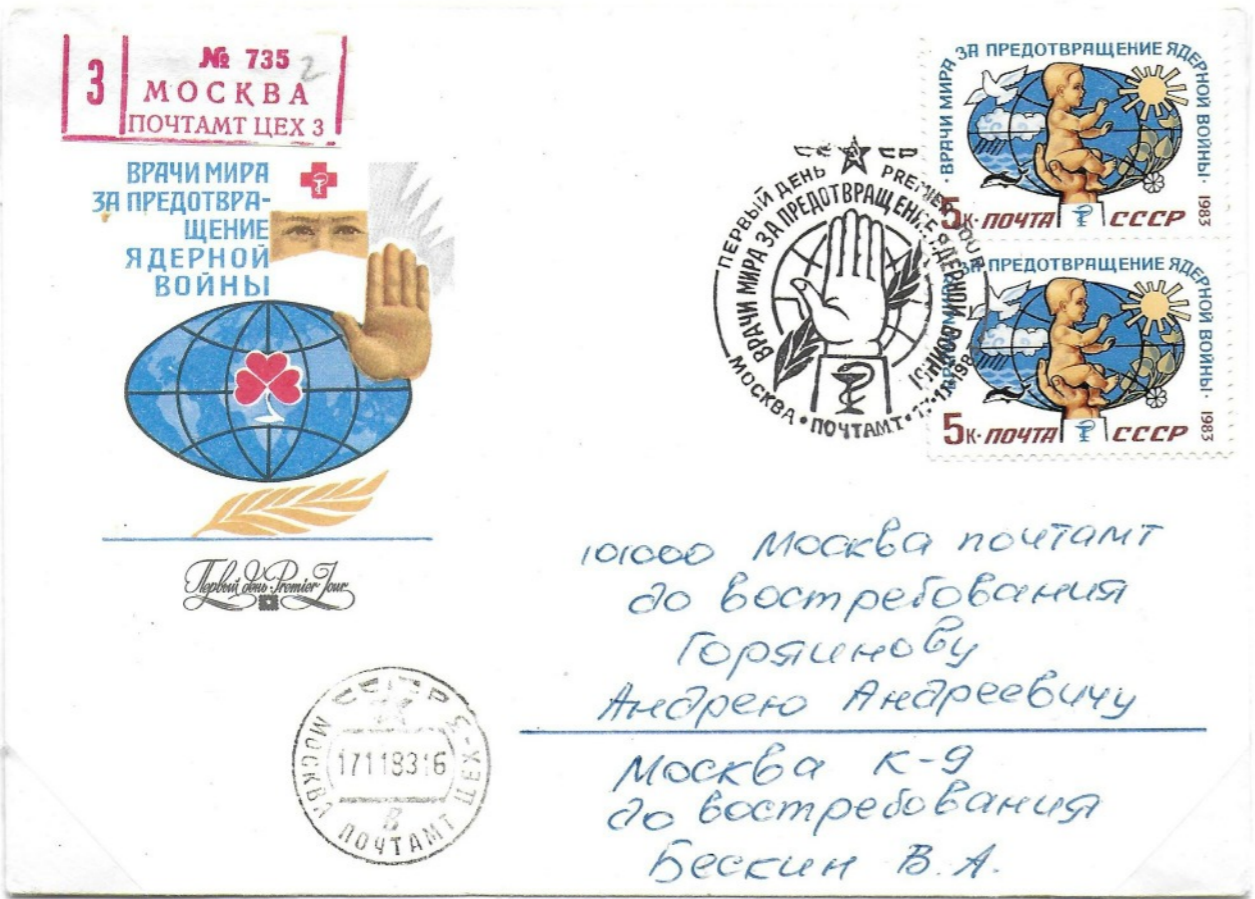 № 735 2
3 МОСКВА
ПОЧТАМТ ЦЕХ 3
ВРАЧИ МИРА
ЗА ПРЕДОТВРА-
ЩЕНИЕ
ЯДЕРНОЙ
ВОЙНЫ
Первый день Premier Jour
ПЕРВЫЙ ДЕНЬ PREMIER JOUR
ВРАЧИ МИРА ЗА ПРЕДОТВРАЩЕНИЕ ЯДЕРНОЙ ВОЙНЫ
МОСКВА • ПОЧТАМТ •
• ВРАЧИ МИРА ЗА ПРЕДОТВРАЩЕНИЕ ЯДЕРНОЙ ВОЙНЫ • 1983
5к • ПОЧТА СССР
ЗА ПРЕДОТВРАЩЕНИЕ ЯДЕРНОЙ ВОЙНЫ • 1983
5к • ПОЧТА СССР
101000 Москва почтамт
до востребования
Горяинову
Андрею Андреевичу
Москва К-9
до востребования
Бескин В.А.
СССР
17118316
В
МОСКВА ПОЧТАМТ ЦЕХ-3